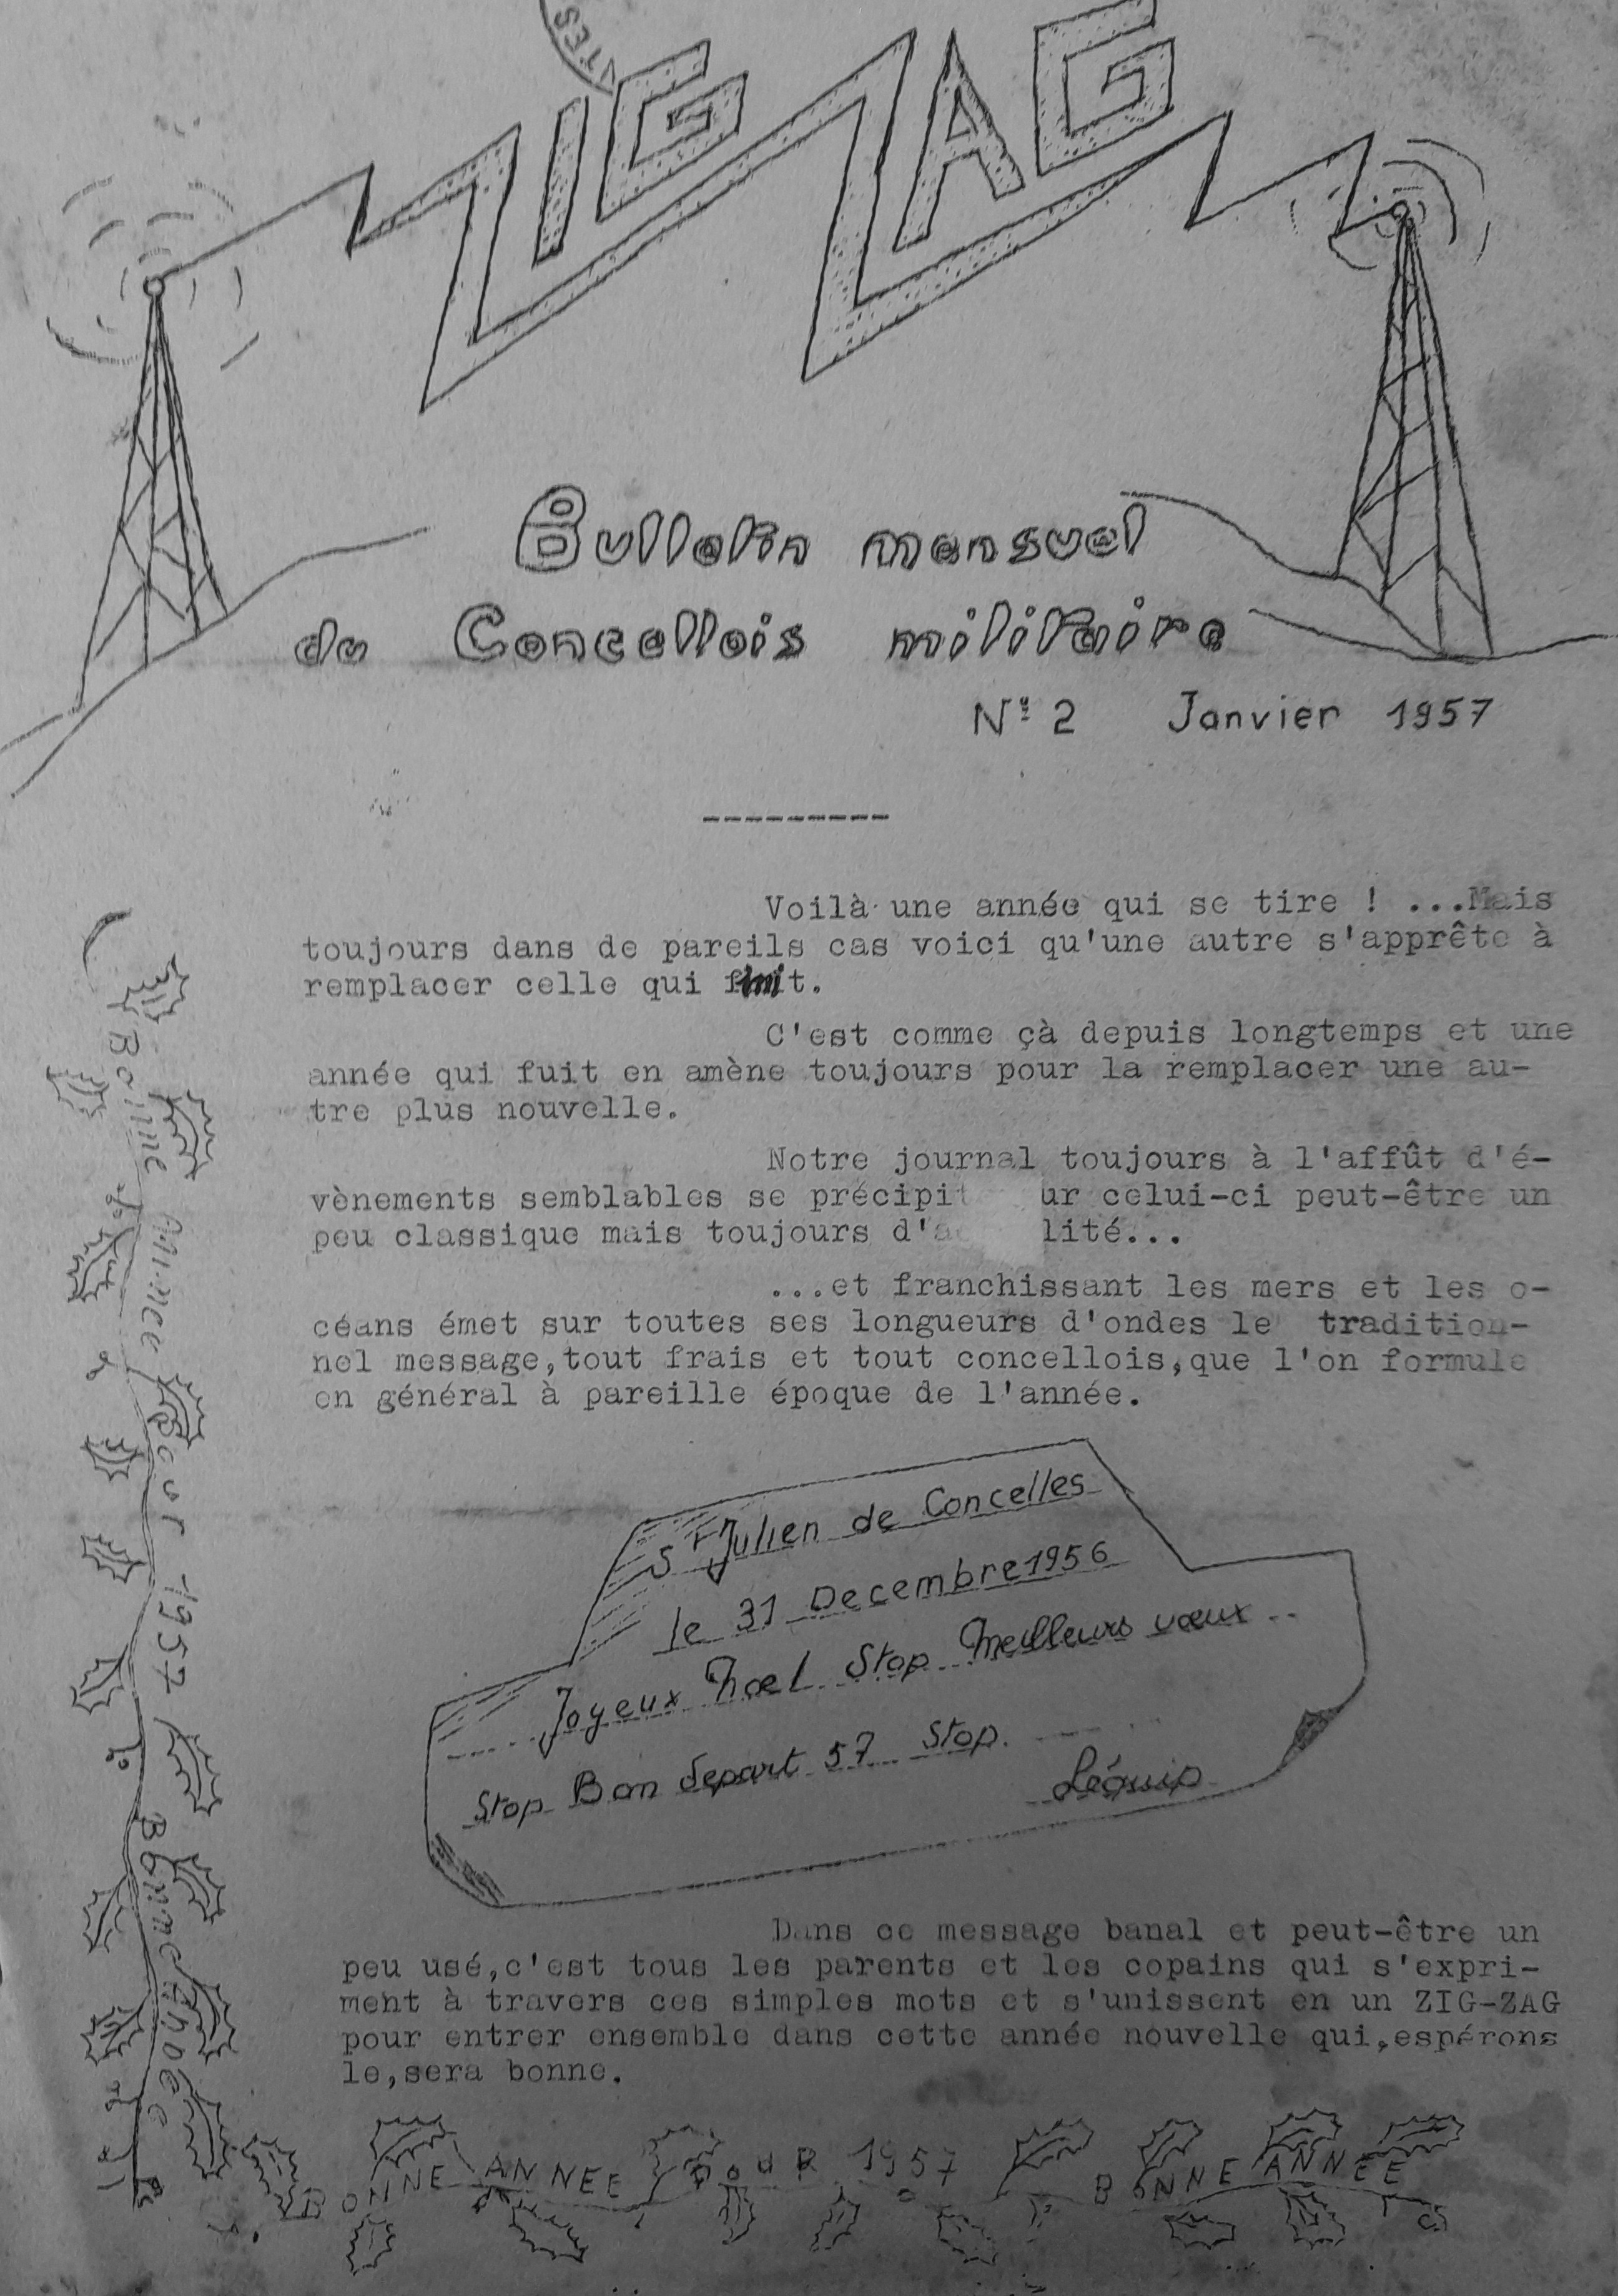 VTES
ZIG ZAG
Bulletin mensuel
du Concellois militaire
N° 2 Janvier 1957
---------
Voilà une année qui se tire ! ...Mais
toujours dans de pareils cas voici qu'une autre s'apprête à
remplacer celle qui finit.
C'est comme çà depuis longtemps et une
année qui fuit en amène toujours pour la remplacer une au-
tre plus nouvelle.
Notre journal toujours à l'affût d'é-
vènements semblables se précipit ur celui-ci peut-être un
peu classique mais toujours d'ac lité...
...et franchissant les mers et les o-
céans émet sur toutes ses longueurs d'ondes le tradition-
nel message,tout frais et tout concellois,que l'on formule
en général à pareille époque de l'année.
St Julien de Concelles
le 31 Decembre 1956
Joyeux Noel Stop Meilleurs vœux
Stop Bon depart 57 Stop.
L'équip
Dans ce message banal et peut-être un
peu usé,c'est tous les parents et les copains qui s'expri-
ment à travers ces simples mots et s'unissent en un ZIG-ZAG
pour entrer ensemble dans cette année nouvelle qui,espérons
le,sera bonne.
Bonne Annee Pour 1957 Bonne Année
BONNE ANNEE POUR 1957 BONNE ANNEE